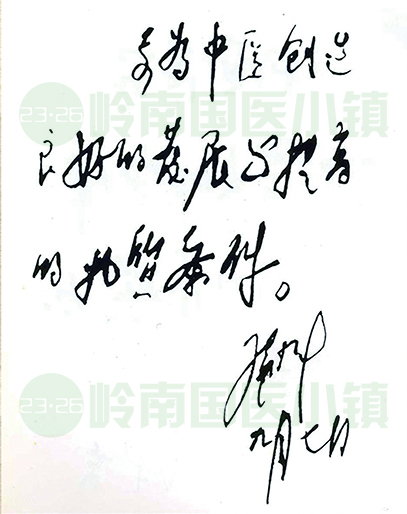 23·26 岭南国医小镇
要为中医创造
良好的發展与提高
的物質条件。
九月七日
23·26 岭南国医小镇